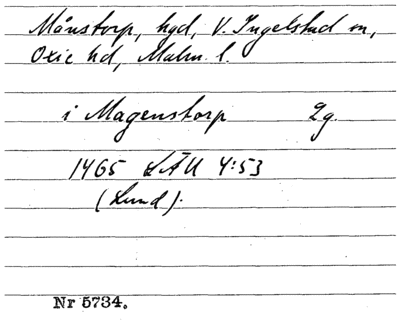 Månstorp, hgd, V. Ingelstad sn,
Oxie hd, Malm. l.
i Magenstorp 2g.
1465 LÄU 4:53
(Lund).
Nr 5734.